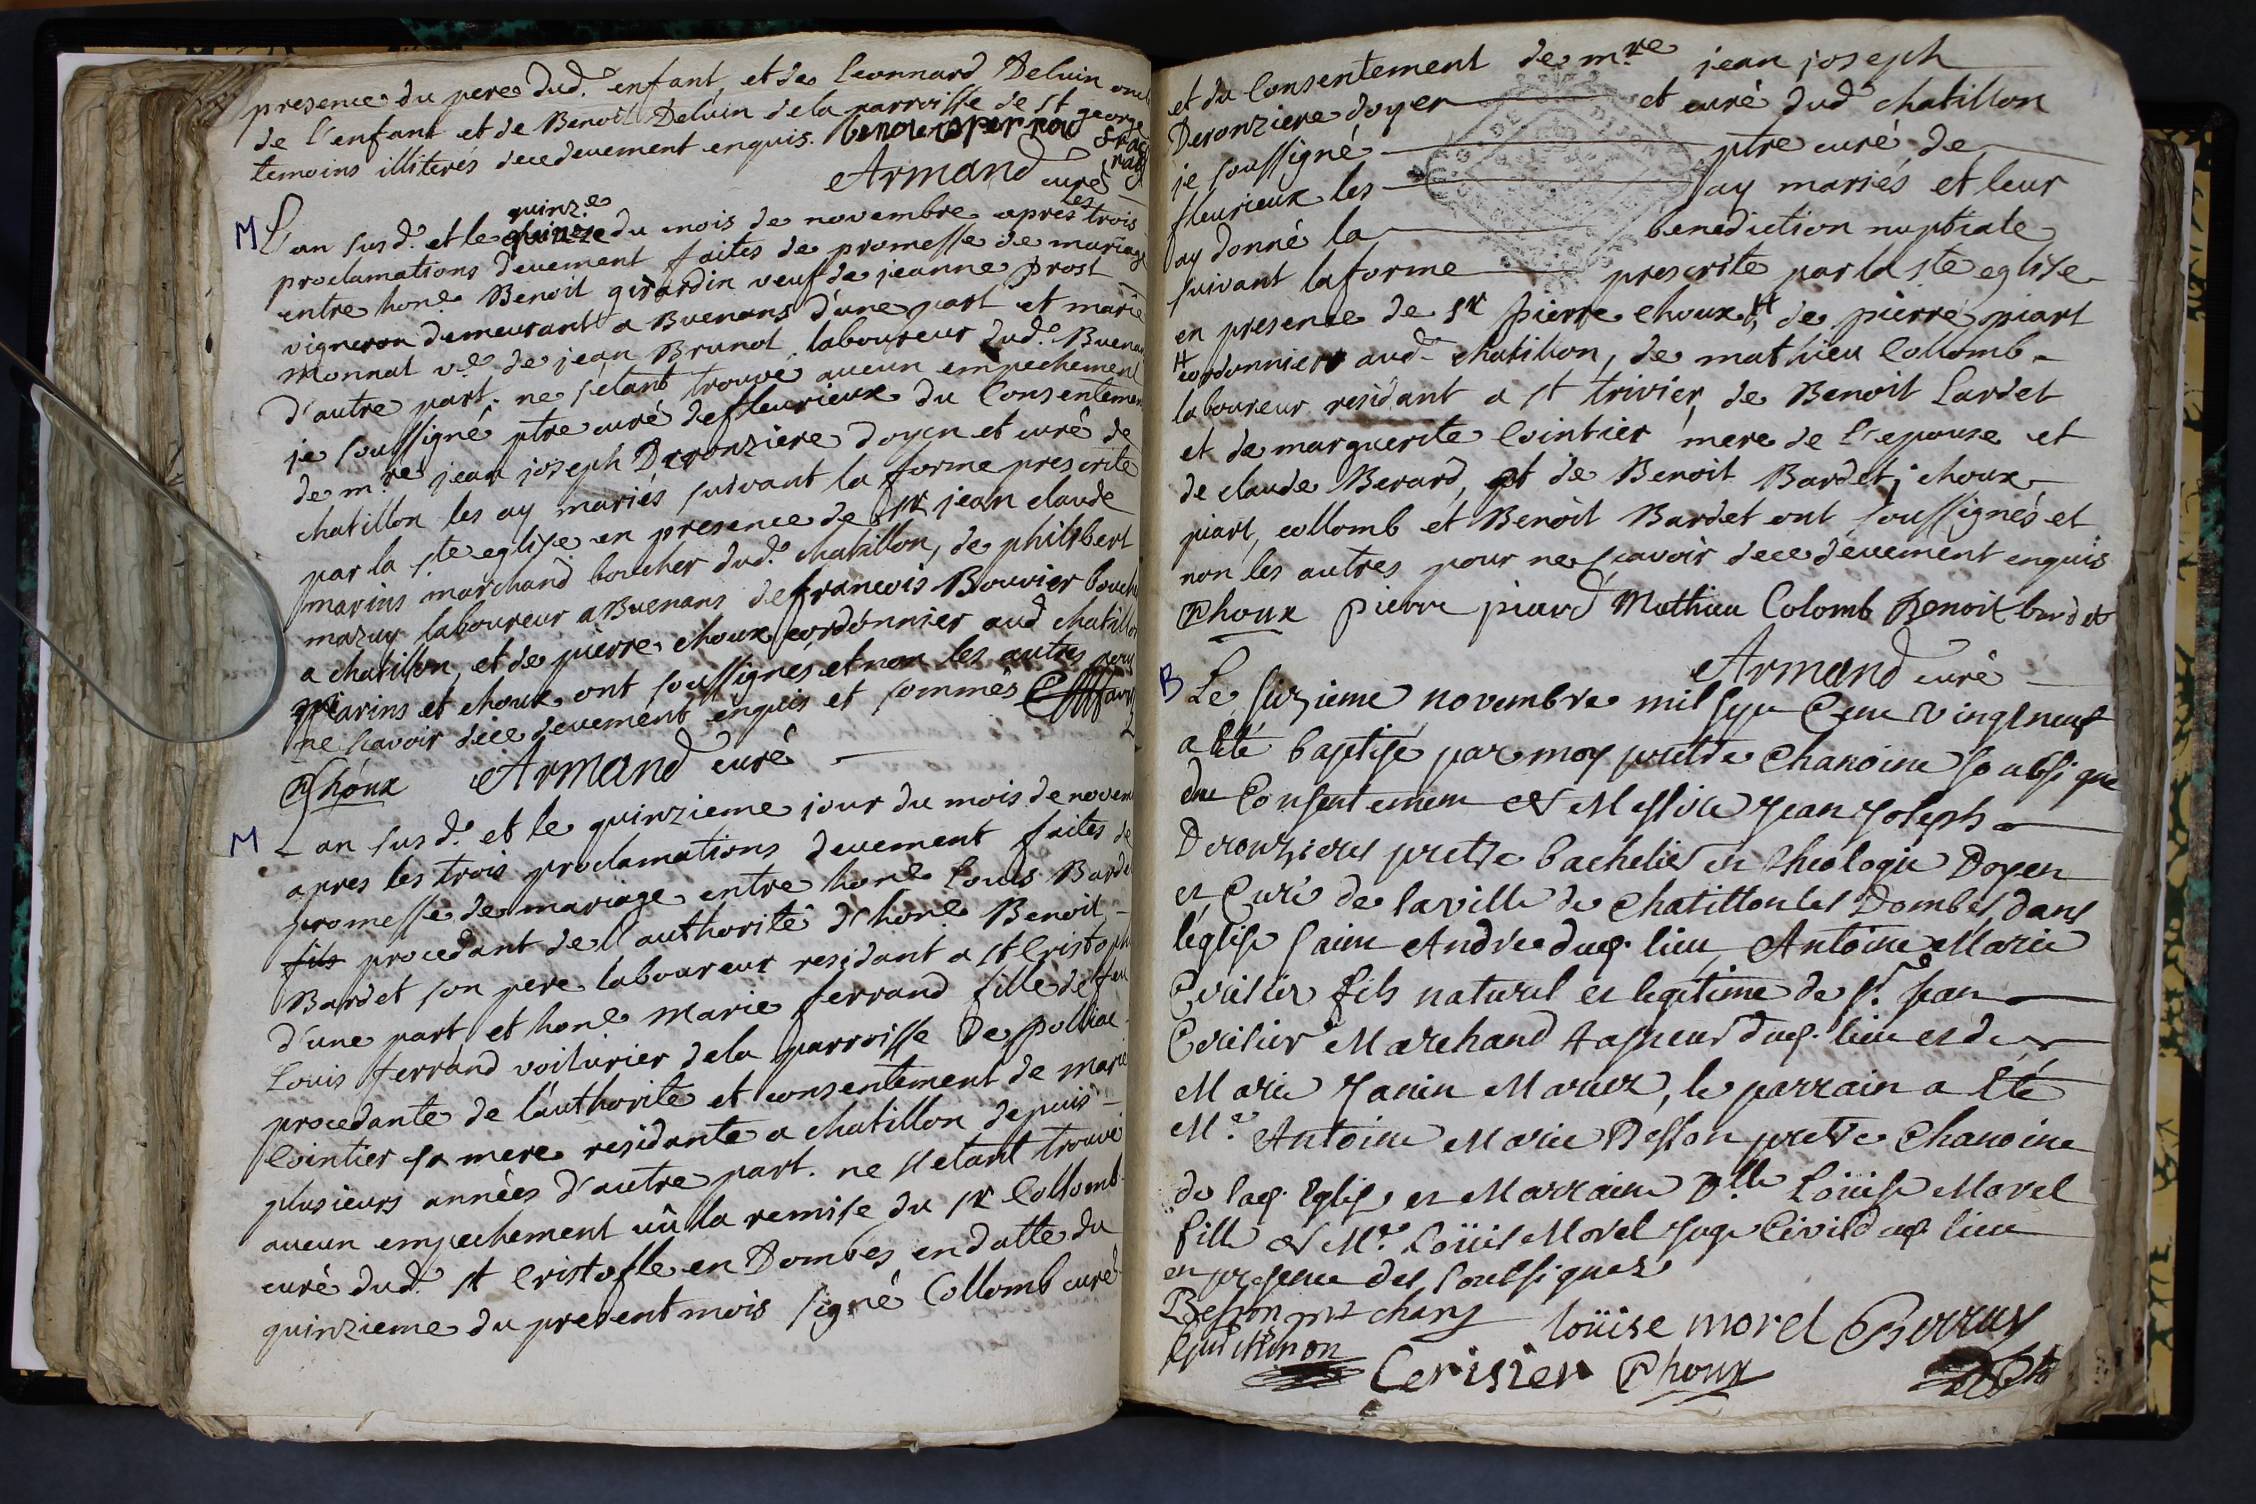 presence du pere dud. enfant, et de Leonnard Deluin oncle
de l'enfant et de Benoit Deluin de la parroisse de st george
temoins illiterés de ce deuement enquis. benoit
Armand curé
M L'an susd. et le quinze du mois de novembre apres les trois
proclamations deuement faites de promesse de mariage
entre hone Benoit girardin veuf de jeanne prost
vigneron demeurant a Buenans d'une part et marie
Monnat ve de jean Brunot laboureur dud. Buenans
d'autre part. ne s'etant trouvé aucun empechement
je soussigné ptre curé de fleurieux du Consentement
de mre jean joseph Deronziere doyen et curé de
chatillon les ay mariés suivant la forme prescrite
par la ste eglise en presence de sr jean claude
marins marchand boucher dud. chatillon, de philibert
mazuy laboureur a Buenans de francois Bouvier bouch
a chatillon, et de pierre choux cordonnier aud chatillon
marins et choux ont soussignés et non les autres pour
ne scavoir de ce deuement enquis et sommés
Choux Armand curé
M L'an susd. et le quinzieme jour du mois de novem
apres les trois proclamations deuement faites de
promesse de mariage entre hone Louis Bardet
fils procedant de l'authorité d'hone Benoit
Bardet son pere laboureur residant a st Cristoph
d'une part et hone Marie ferrand fille de feu
Louis ferrand voiturier de la parroisse de polliac
procedante de l'authorité et consentement de marie
Cointier sa mere residante a chatillon depuis
plusieurs années d'autre part. ne s'etant trouvé
aucun empechement vû la remise du sr Collomb
curé dud. st Cristofle en Dombes en datte du
quinzieme du present mois signé Collomb curé
et du Consentement de mre jean joseph
Deronziere doyen et curé dud chatillon
je soussigné ptre curé de
fleurieux les ay mariés et leur
ay donné la benediction nuptiale
suivant la forme prescrite par la ste eglise
en presence de sr pierre choux H, de pierre piart
H cordonnier aud. chatillon, de mathieu Collomb
laboureur residant a st trivier, de Benoit Lardet
et de marguerite Cointier mere de l'epouse et
de claude Berard, et de Benoit Bardet; choux
piart, collomb et Benoit Bardet ont soussignés et
non les autres pour ne scavoir de ce deuement enquis
Choux pierre piard Mathieu Colomb Benoit bardet
Armand curé
B Le sizieme novembre mil sept Cent vingt neuf
a été baptisé par moy pretre Chanoine soubsigné
du Consentement de Messire Jean Joseph
Deronzieres pretre bachelier en Theologie Doyen
et Curé de la ville de Chatillon les Dombes, dans
leglise saint André dud. lieu Antoine Marie
Cerisier fils naturel et legitime de sr. Jean
Cerisier Marchand Taneur dud. lieu et de
Marie Janin Mariez, le parrain a été
Mre Antoine Marie Besson pretre Chanoine
de lad. Eglise et Marraine Dlle Loüise Morel
fille de Mr. Loüis Morel Juge Civil dud. lieu
en presence des soubsignez
Besson ptre chan
loüise morel
Cerisier Choux